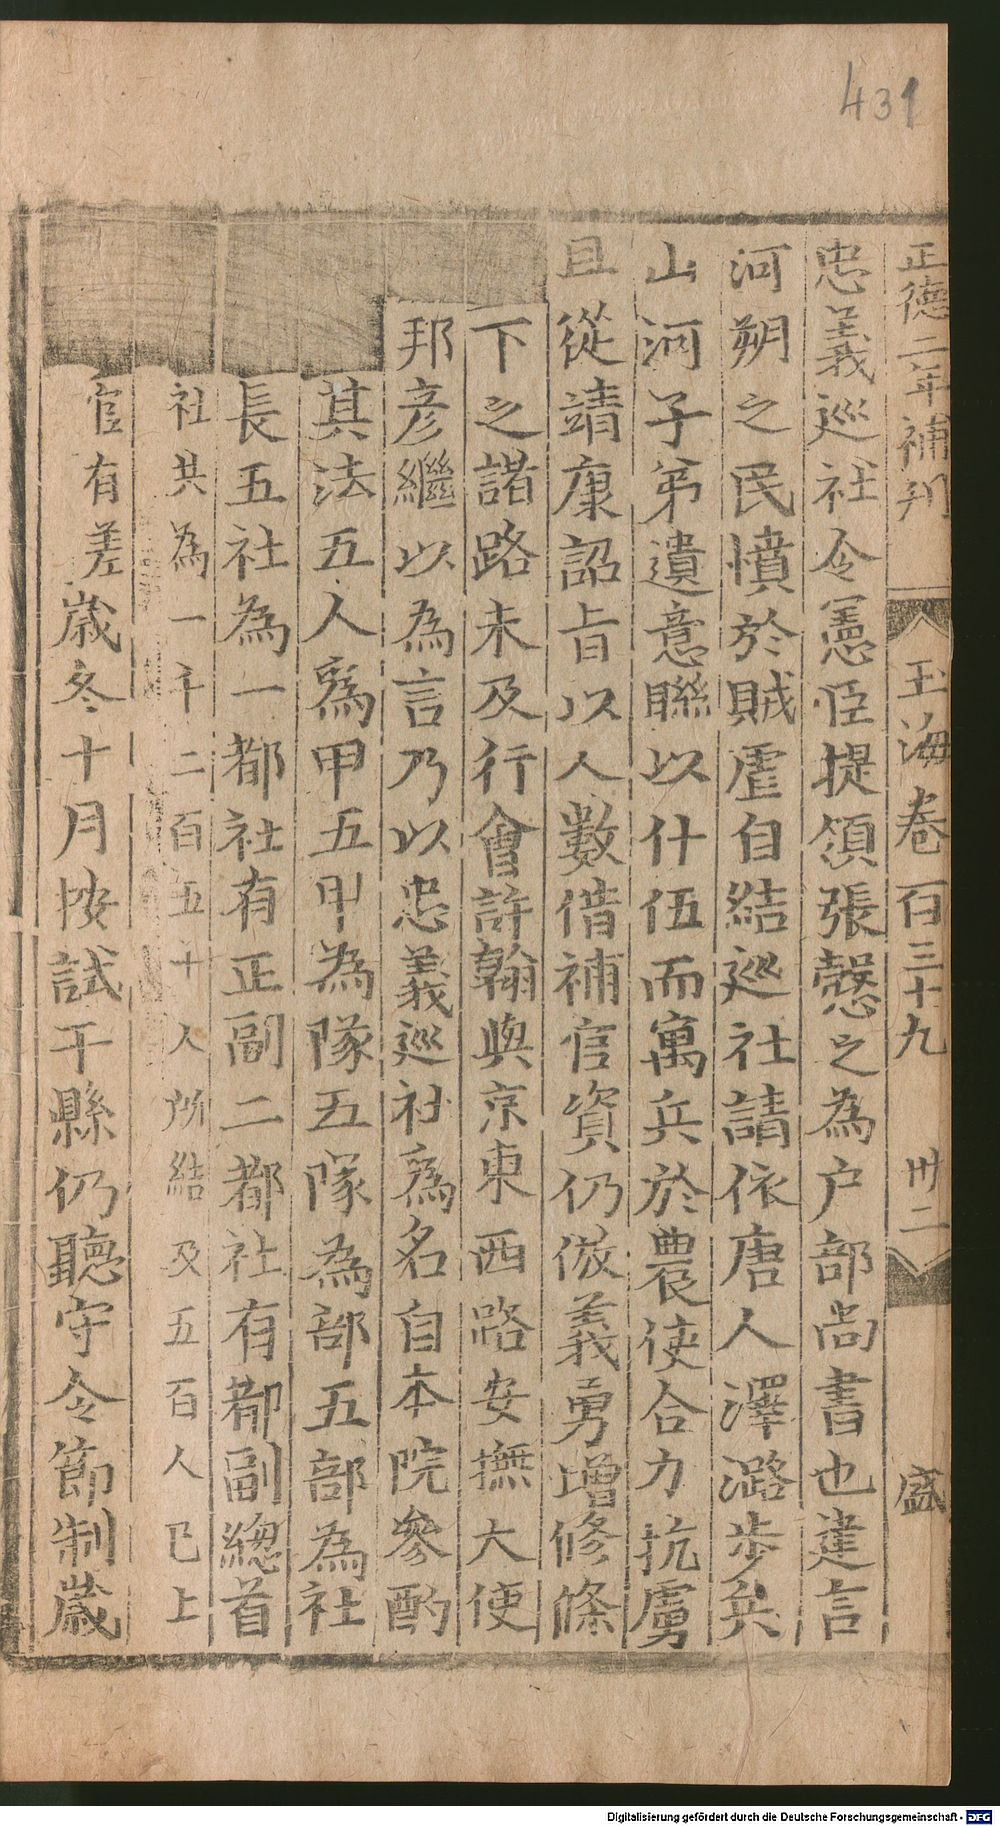 431
正德二年補刋 玉海卷百三十九 卅二 盛
忠義巡社令憲臣提領張慤之為户部尚書也建言
河朔之民憤於賊虐自結巡社請依唐人澤潞步兵
山河子弟遺意聯以什伍而寓兵於農使合力抗虜
且從靖康詔旨以人數借補官資仍倣義勇增修條
下之諸路未及行會許翰與京東西路安撫大使
邦彦繼以為言乃以忠義巡社爲名自本院參酌
其法五人爲甲五甲為隊五隊為部五部為社
長五社為一都社有正副二都社有都副總首
社共為一千二百五十人所結及五百人已上
官有差歲冬十月按試于縣仍聽守令節制歲
Digitalisierung gefördert durch die Deutsche Forschungsgemeinschaft - DFG